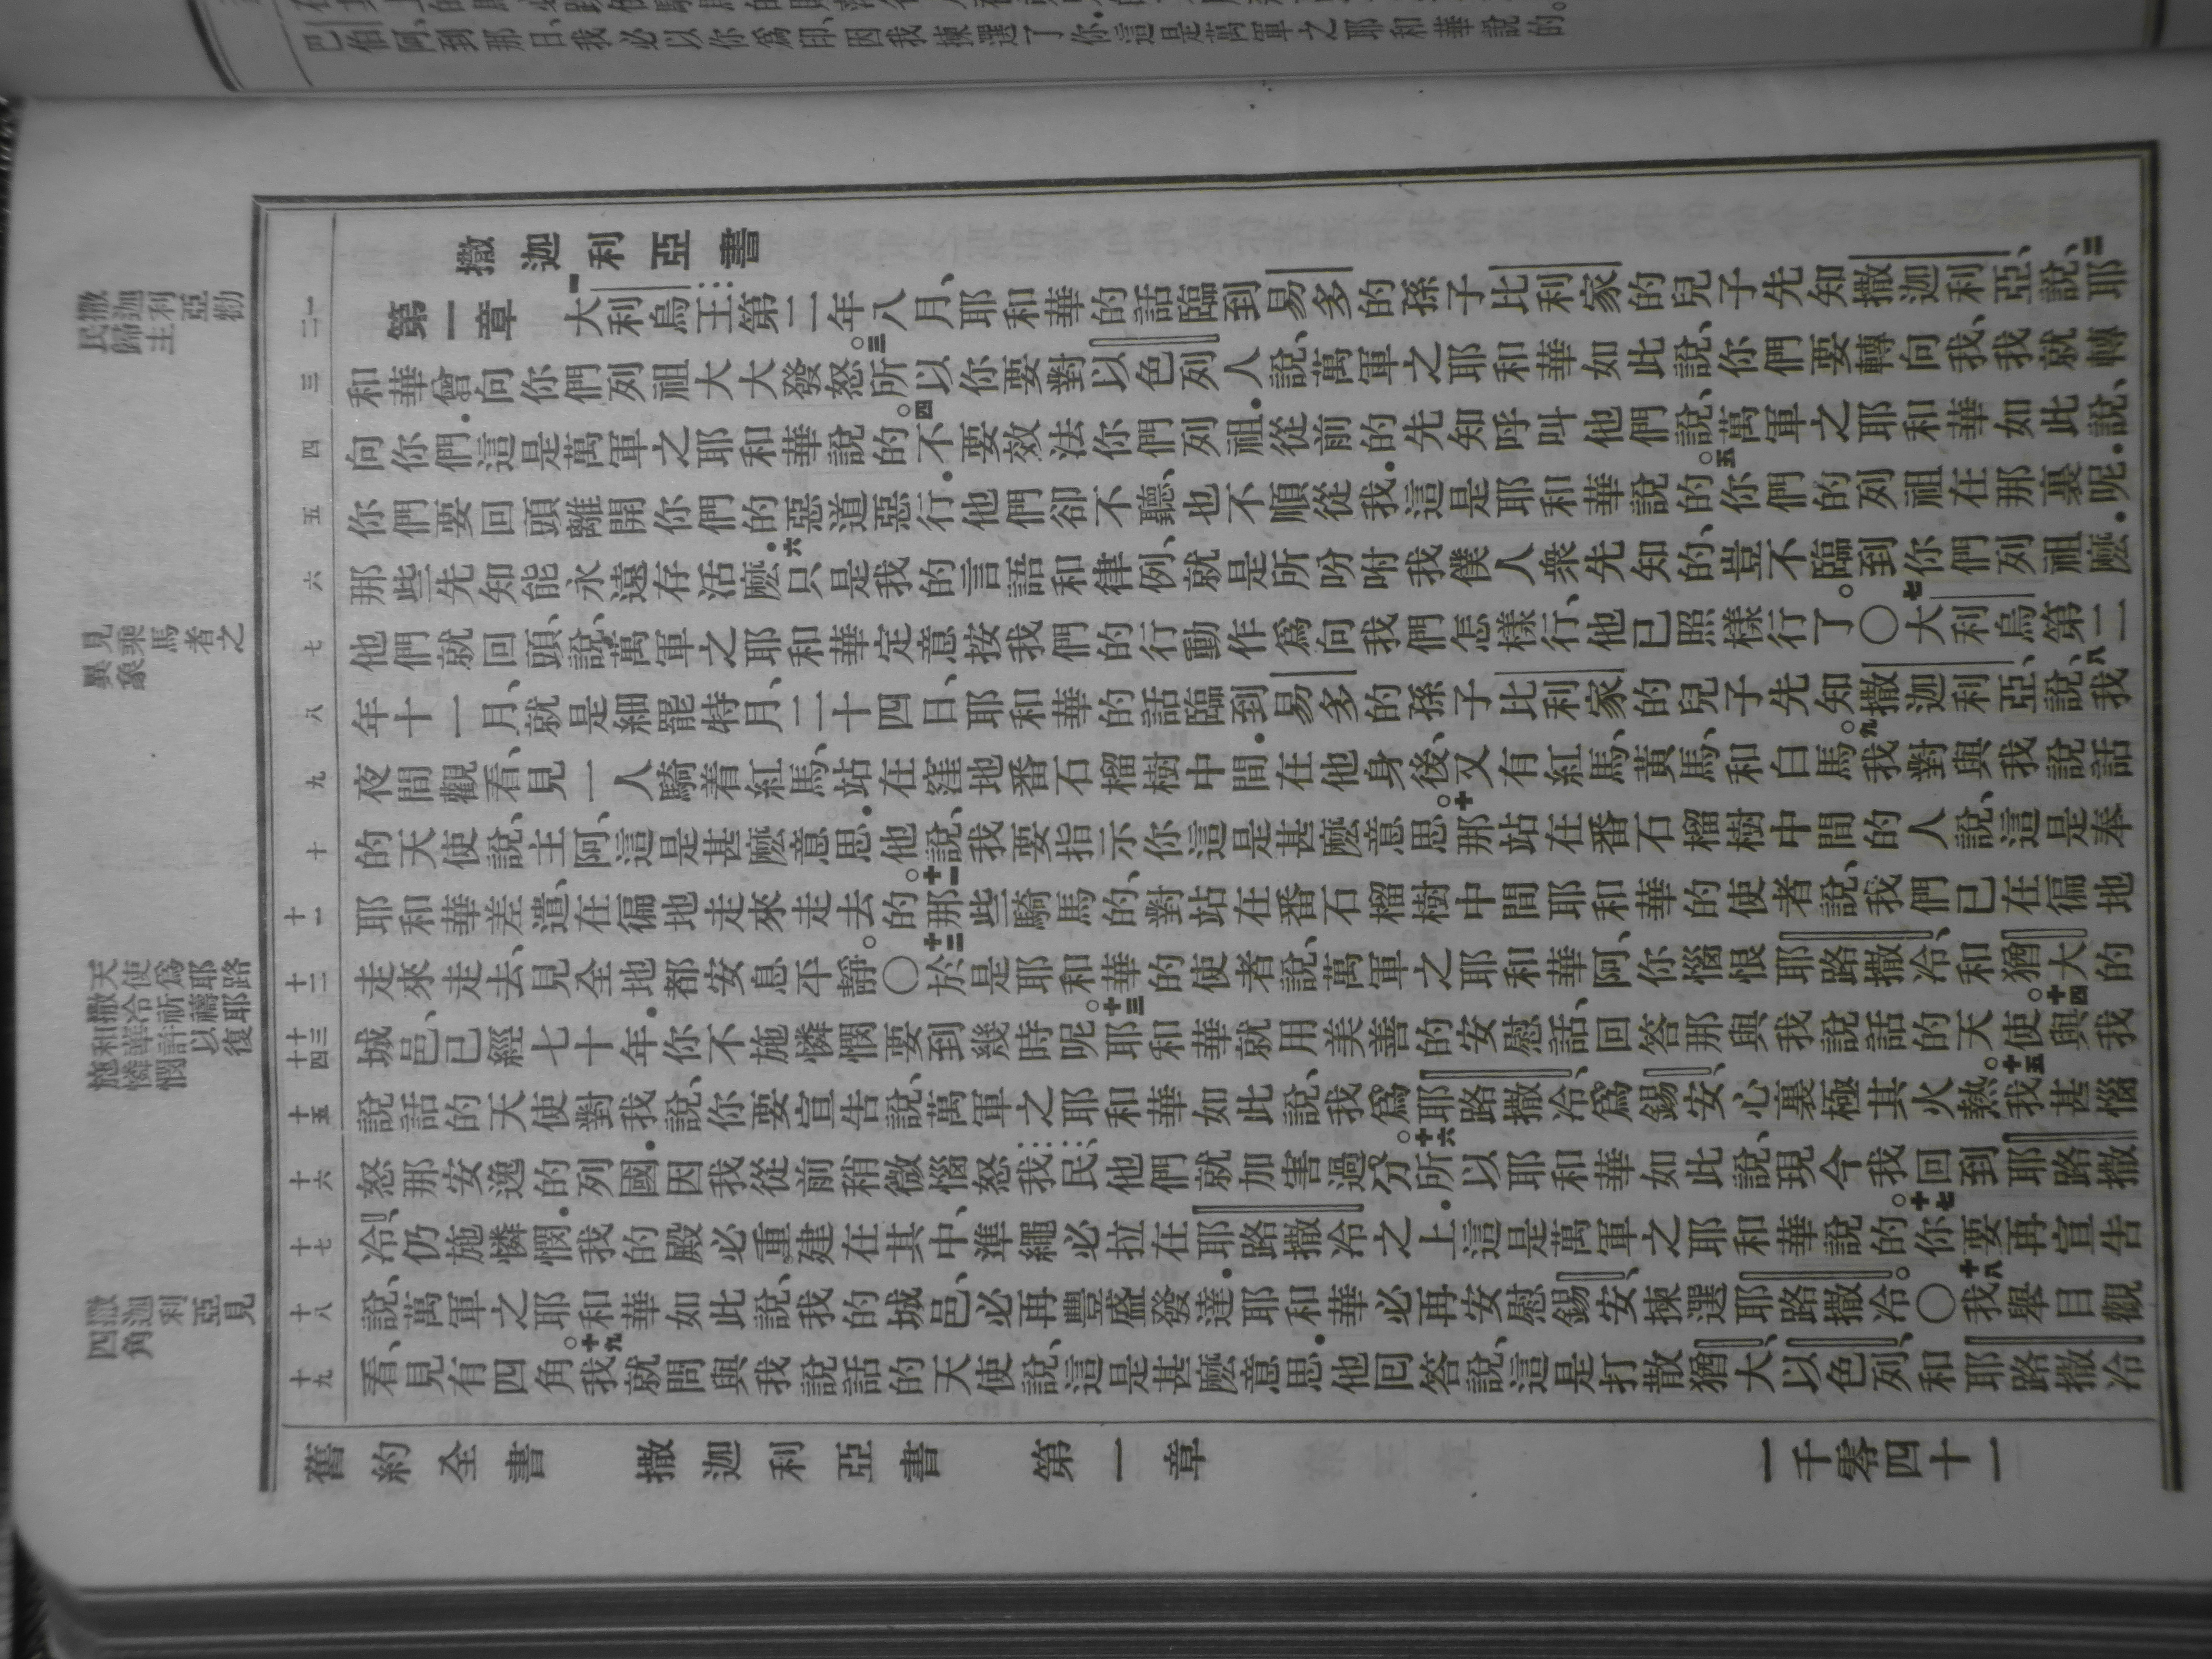 巴伯阿、到那日、我必以你爲印、因我揀選了你.這是萬軍之耶和華說的。
撒迦利亞勸
民歸主
見乘馬者之
異象
天使爲耶路
撒冷祈禱耶
和華許以復
施憐憫
撒迦利亞見
四角
撒迦利亞書
一二 第一章 一大利烏王第二年八月、耶和華的話臨到易多的孫子比利家的兒子先知撒迦利亞、說、二耶
三 和華曾向你們列祖大大發怒。三所以你要對以色列人說、萬軍之耶和華如此說、你們要轉向我、我就轉
四 向你們.這是萬軍之耶和華說的。四不要效法你們列祖.從前的先知呼叫他們說、萬軍之耶和華如此說、
五 你們要回頭離開你們的惡道惡行.他們卻不聽、也不順從我.這是耶和華說的。五你們的列祖在那裏呢.
六 那些先知能永遠存活麽.六只是我的言語和律例、就是所吩咐我僕人衆先知的、豈不臨到你們列祖麽.
七 他們就回頭、說、萬軍之耶和華定意按我們的行動作爲向我們怎樣行、他已照樣行了。〇七大利烏第二
八 年十一月、就是細罷特月、二十四日、耶和華的話臨到易多的孫子比利家的兒子先知撒迦利亞、說、八我
九 夜間觀看、見一人騎着紅馬、站在窪地番石榴樹中間.在他身後、又有紅馬、黃馬、和白馬。九我對與我說話
十 的天使說、主阿、這是甚麽意思.他說、我要指示你這是甚麽意思。十那站在番石榴樹中間的人說、這是奉
十一 耶和華差遣、在徧地走來走去的。十一那些騎馬的、對站在番石榴樹中間耶和華的使者說、我們已在徧地
十二 走來走去、見全地都安息平靜。〇十二於是耶和華的使者說、萬軍之耶和華阿、你惱恨耶路撒冷、和猶大的
十三十四 城邑、已經七十年.你不施憐憫要到幾時呢。十三耶和華就用美善的安慰話、回答那與我說話的天使。十四與我
十五 說話的天使對我說、你要宣告說、萬軍之耶和華如此說、我爲耶路撒冷、爲錫安、心裏極其火熱。十五我甚惱
十六 怒那安逸的列國.因我從前稍微惱怒我民、他們就加害過分。十六所以耶和華如此說、現今我回到耶路撒
十七 冷、仍施憐憫.我的殿必重建在其中、準繩必拉在耶路撒冷之上.這是萬軍之耶和華說的。十七你要再宣告
十八 說、萬軍之耶和華如此說、我的城邑、必再豐盛發達.耶和華必再安慰錫安、揀選耶路撒冷。〇十八我舉目觀
十九 看、見有四角。十九我就問與我說話的天使說、這是甚麽意思.他回答說、這是打散猶大、以色列、和耶路撒冷
舊約全書 撒迦利亞書 第一章 一千零四十一